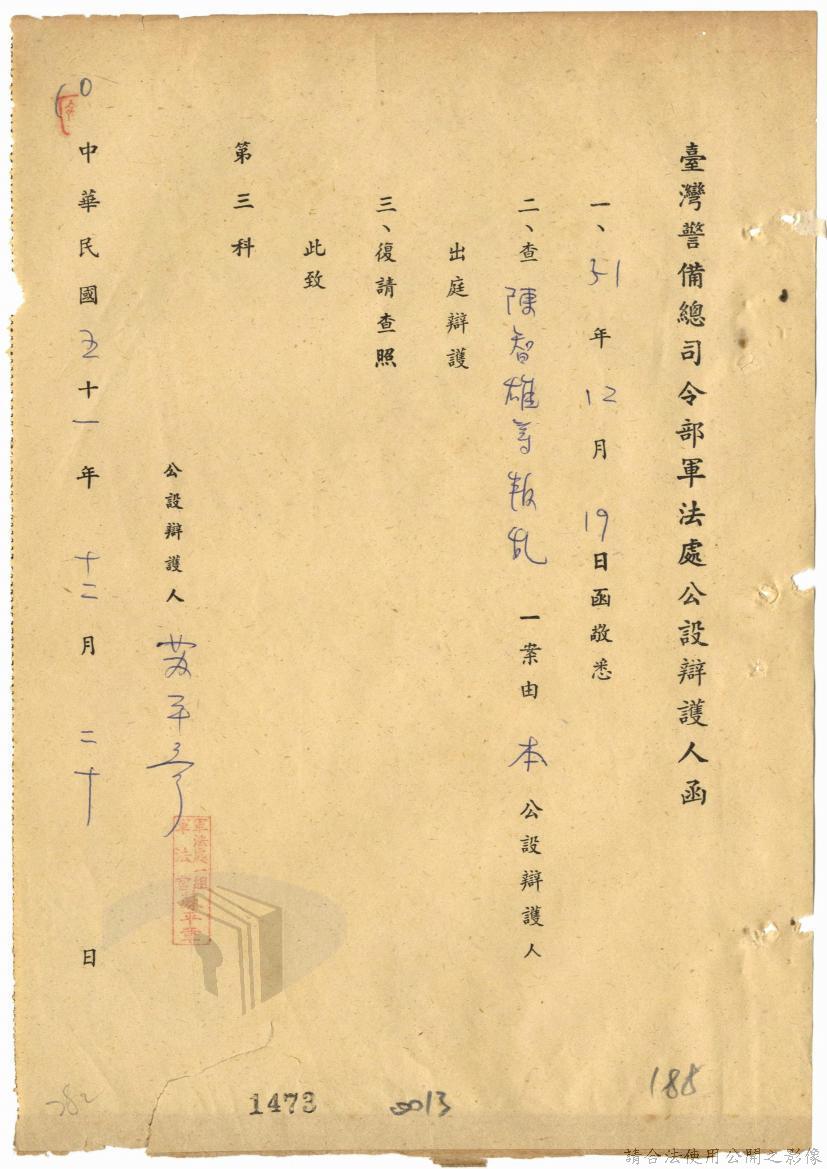 臺灣警備總司令部軍法處公設辯護人函
一、51年12月19日函敬悉
二、查陳智雄等叛乱一案由本公設辯護人
出庭辯護
三、復請查照
此致
第三科
公設辯護人
軍法處一組
軍法官
中華民國五十一年十二月二十日
188
1473
0013
282
請合法使用公開之影像